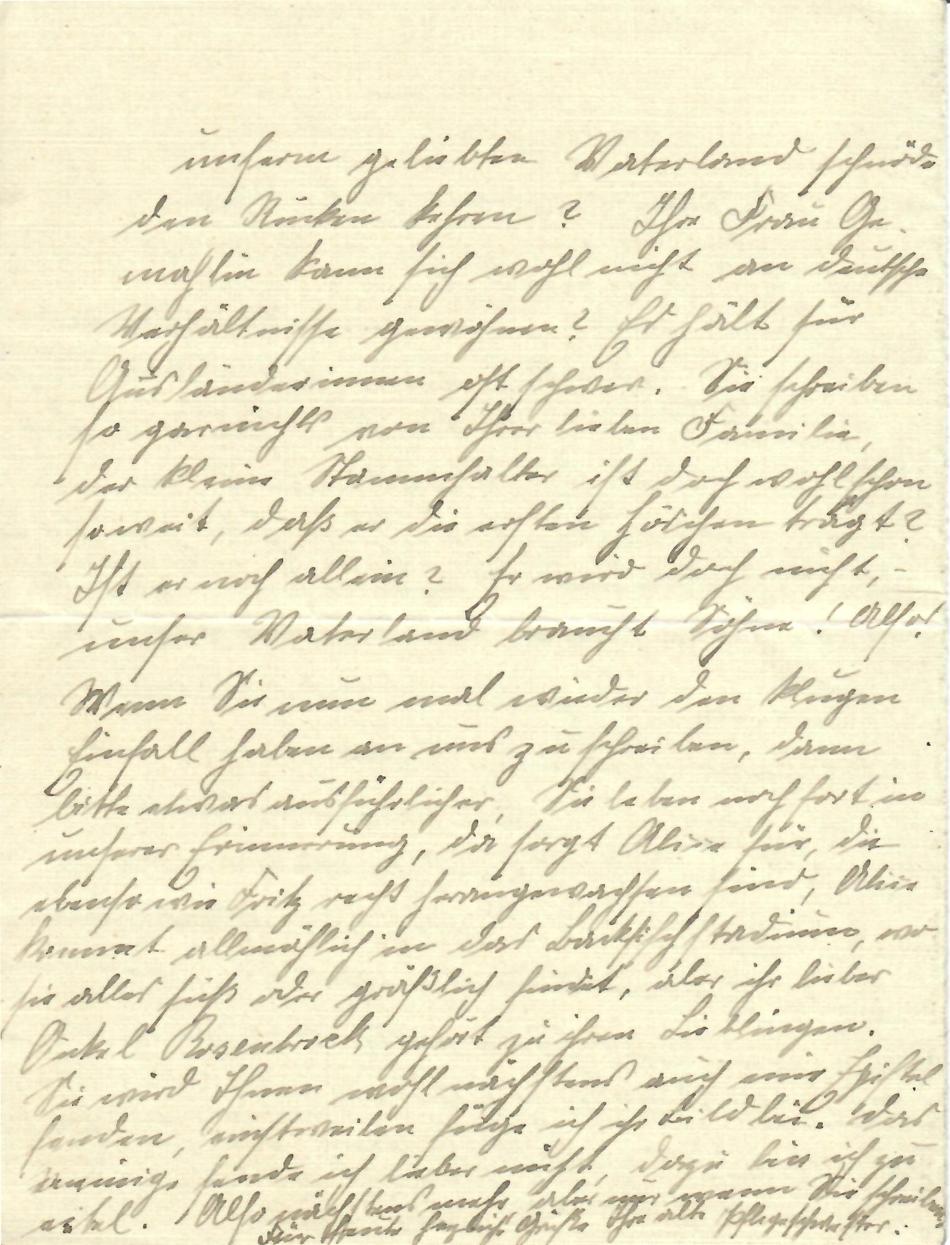 unserm geliebten Vaterland schnöde
den Rücken kehren? Ihre Frau Ge-
mahlin kann sich wohl nicht an deutsche
Verhältnisse gewöhnen? Es hält für
Ausländerinnen oft schwer. Sie schreiben
so garnichts von Ihrer lieben Familie,
der kleine Stammhalter ist doch wohl schon
soweit, daß er die ersten Höschen trägt?
Ist er noch allein? Er wird doch nicht, -
unser Vaterland braucht Söhne! Also!
Wenn Sie nun mal wieder den klugen
Einfall haben an uns zu schreiben, dann
bitte etwas ausführlicher, Sie leben noch fort in
unserer Erinnerung, da sorgt Alice für, die
ebenso wie Fritz recht herangewachsen sind, Alice
kommt allmählich in das Backfischstadium, wo
sie alles süß oder gräßlich findet, aber ihr lieber
Onkel Rosenbrock gehört zu ihren Lieblingen.
Sie wird Ihnen wohl nächstens auch eine Epistel
senden, einstweilen füge ich ihr Bild bei. Das
meinige sende ich lieber nicht, dazu bin ich zu
eitel. Also nächstens mehr, aber nur wenn Sie schreiben.
Für heute herzliche Grüße Ihre alte Pflegeschwester.